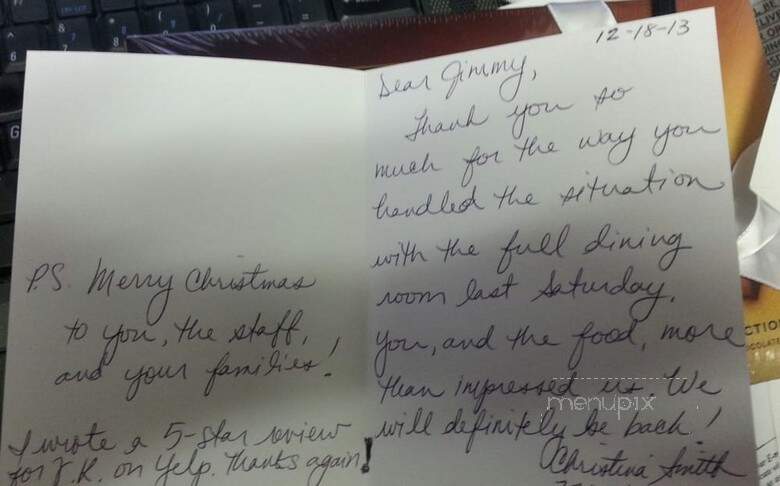 12-18-13
Dear Jimmy,
Thank you so
much for the way you
handled the situation
with the full dining
room last Saturday.
You, and the food, more
than impressed us. We
will definitely be back!
Christina Smith
P.S. Merry Christmas
to you, the staff,
and your families!
I wrote a 5-star review
for J.R. on Yelp. Thanks again!
menupix
CTIO